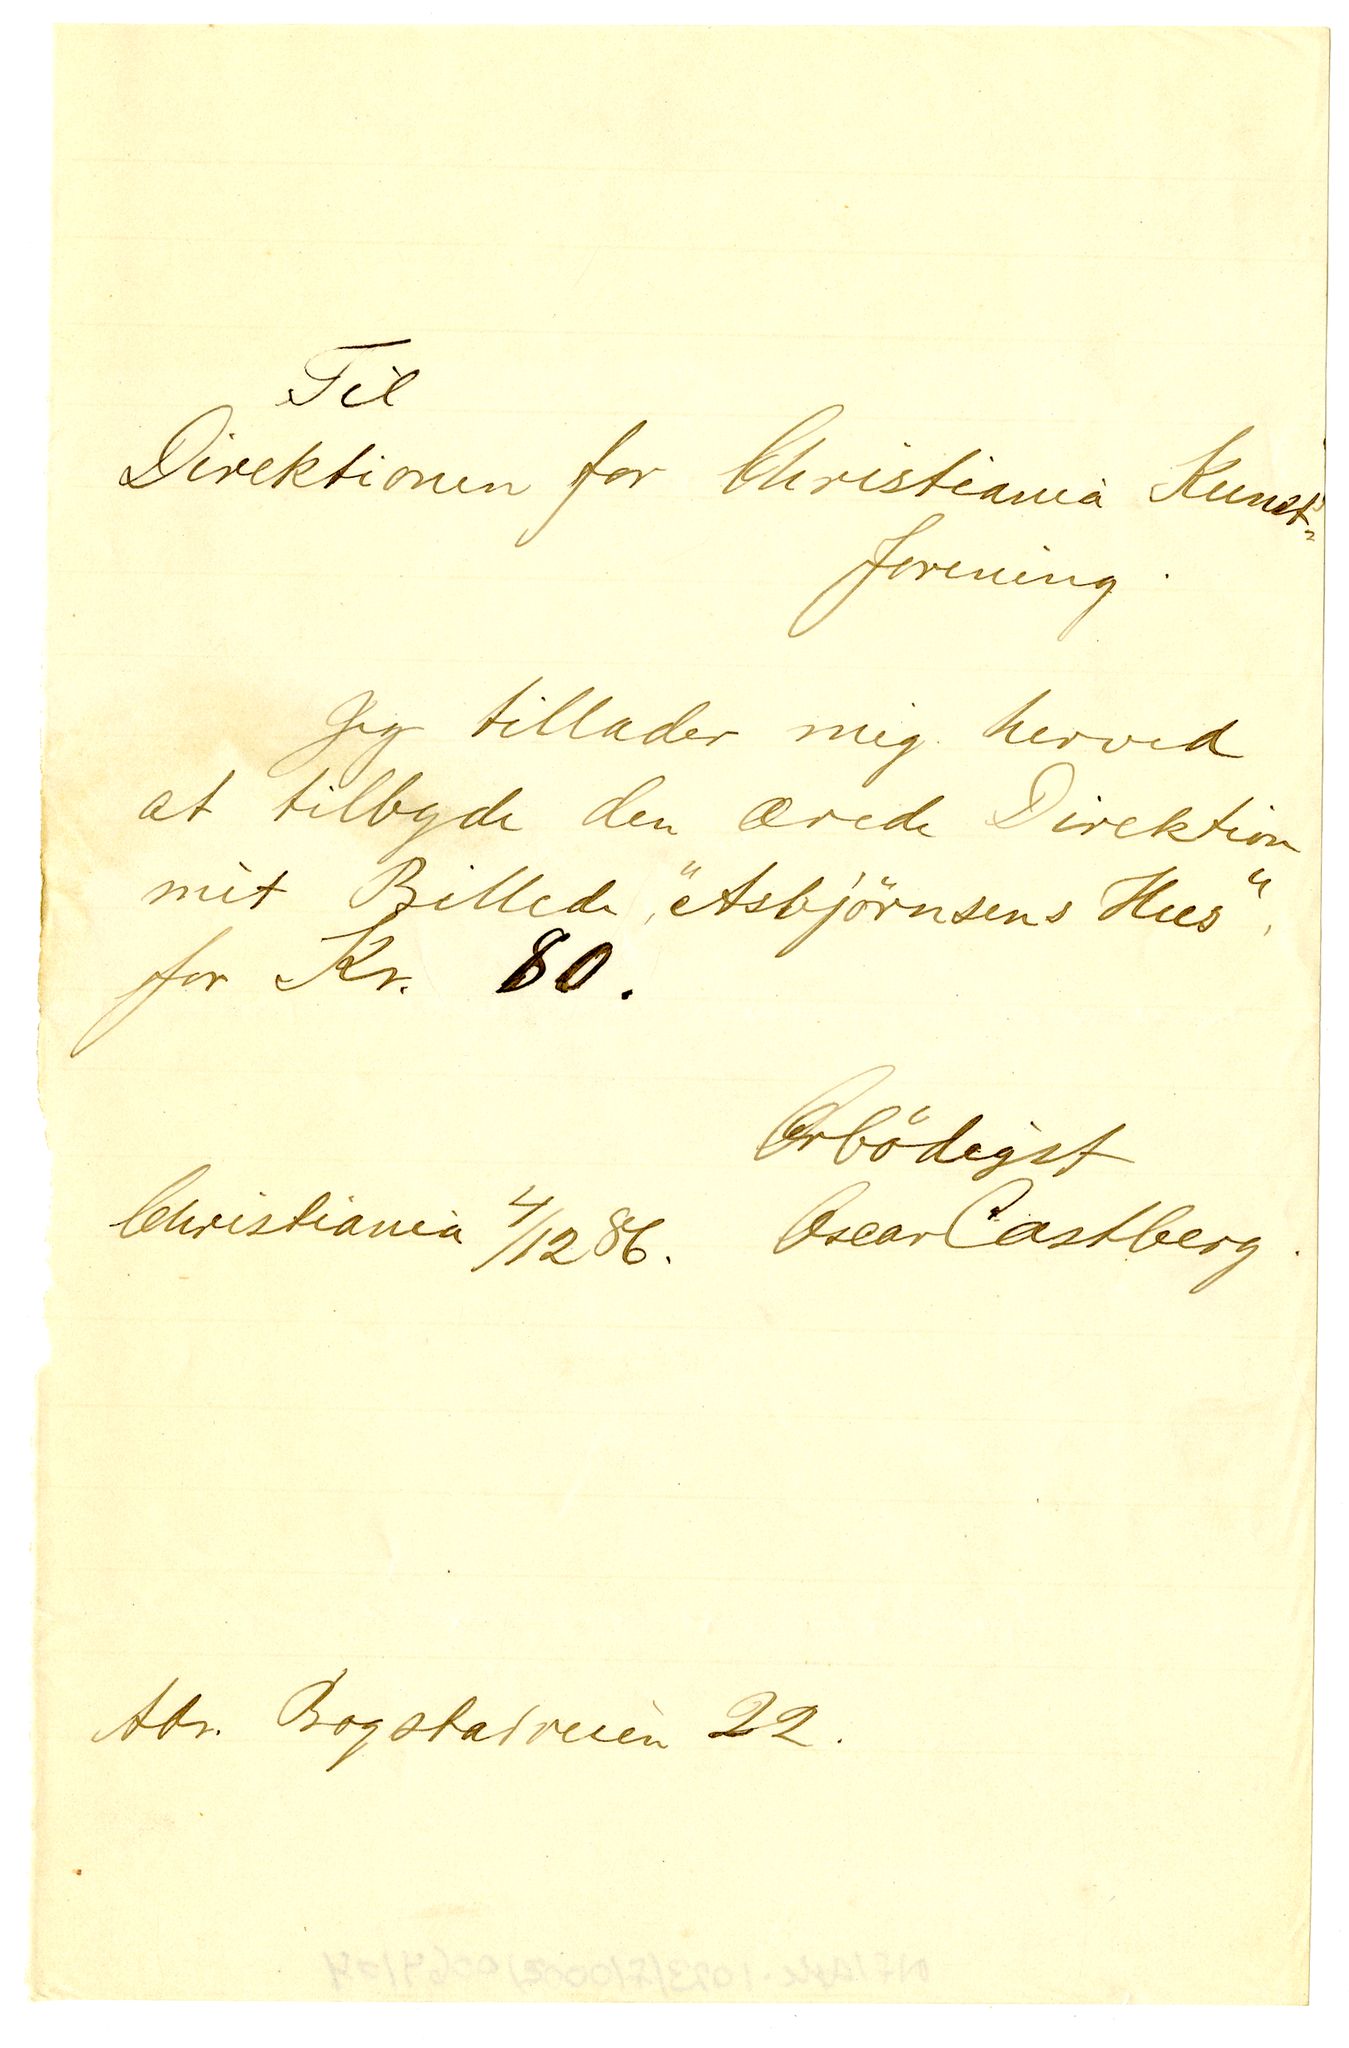 Til
Direktionen for Christiania Kunst-
forening.
Jeg tillader mig herved
at tilbyde den ærede Direktion
mit Billede, "Asbjörnsens Hus",
for Kr. 80.
Ærbödigst
Christiania 4/12 86. Oscar Castberg.
Adr. Bogstadveien 22.